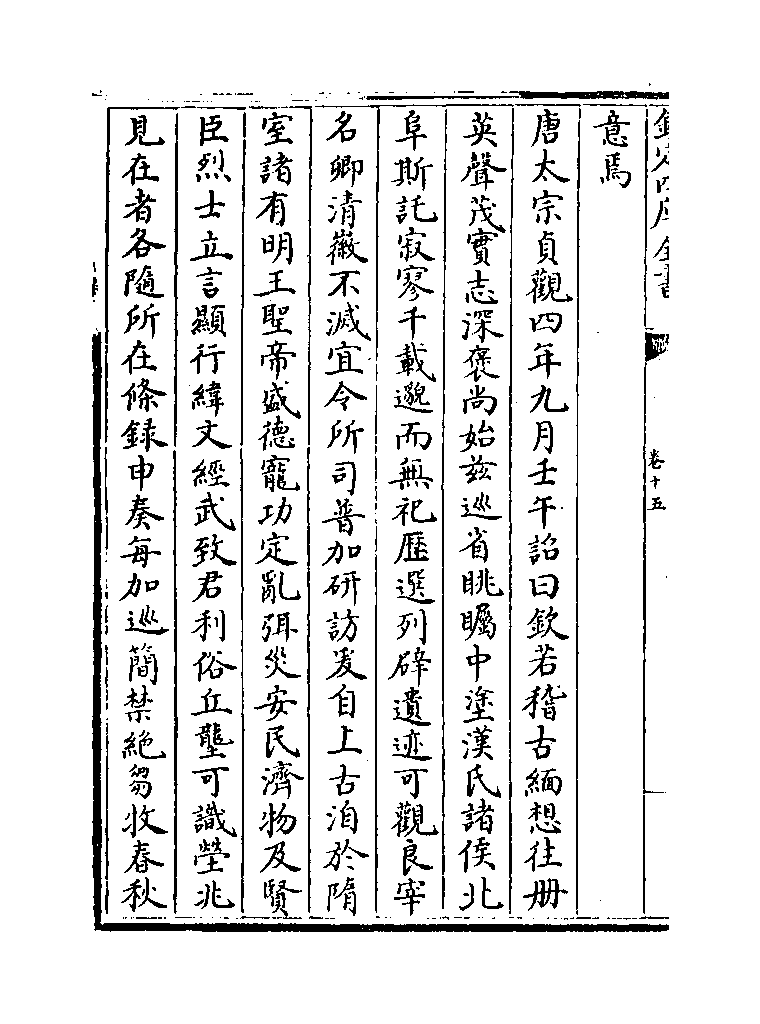 欽定四庫全書
卷十五
意焉
唐太宗貞觀四年九月壬午詔曰欽若稽古緬想往册
英聲茂實志深褒尚始兹巡省眺矚中塗漢氏諸侯北
阜斯託寂寥千載邈而無祀歷選列辟遺迹可觀良宰
名卿清徽不滅宜令所司普加研訪爰自上古洎於隋
室諸有明王聖帝盛德寵功定亂弭災安民濟物及賢
臣烈士立言顯行緯文經武致君利俗丘壟可識塋兆
見在者各隨所在條録申奏每加巡簡禁絶芻牧春秋